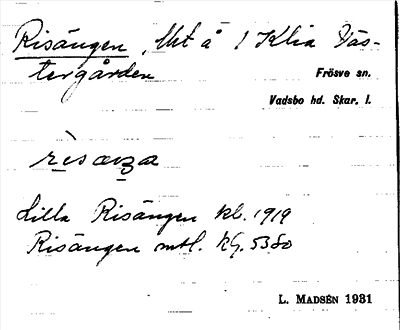 Risängen, Ukt å 1 Klia Väs-
tergården
Frösve sn.
Vadsbo hd. Skar. l.
Lilla Risängen kb. 1919
Risängen mtl. kG. 5380
L. MADSÉN 1931